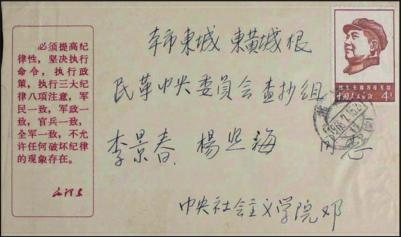 必须提高纪
律性，坚决执行
命令，执行政
策，执行三大纪
律八项注意，军
民一致，军政一
致，官兵一致，
全军一致，不允
许任何破坏纪律
的现象存在。
毛泽东
本市东城 東黃城根
民革中央委员会查抄组
李景春 楊 海 同志
中央社会主义学院邓
中国人民邮政 4分